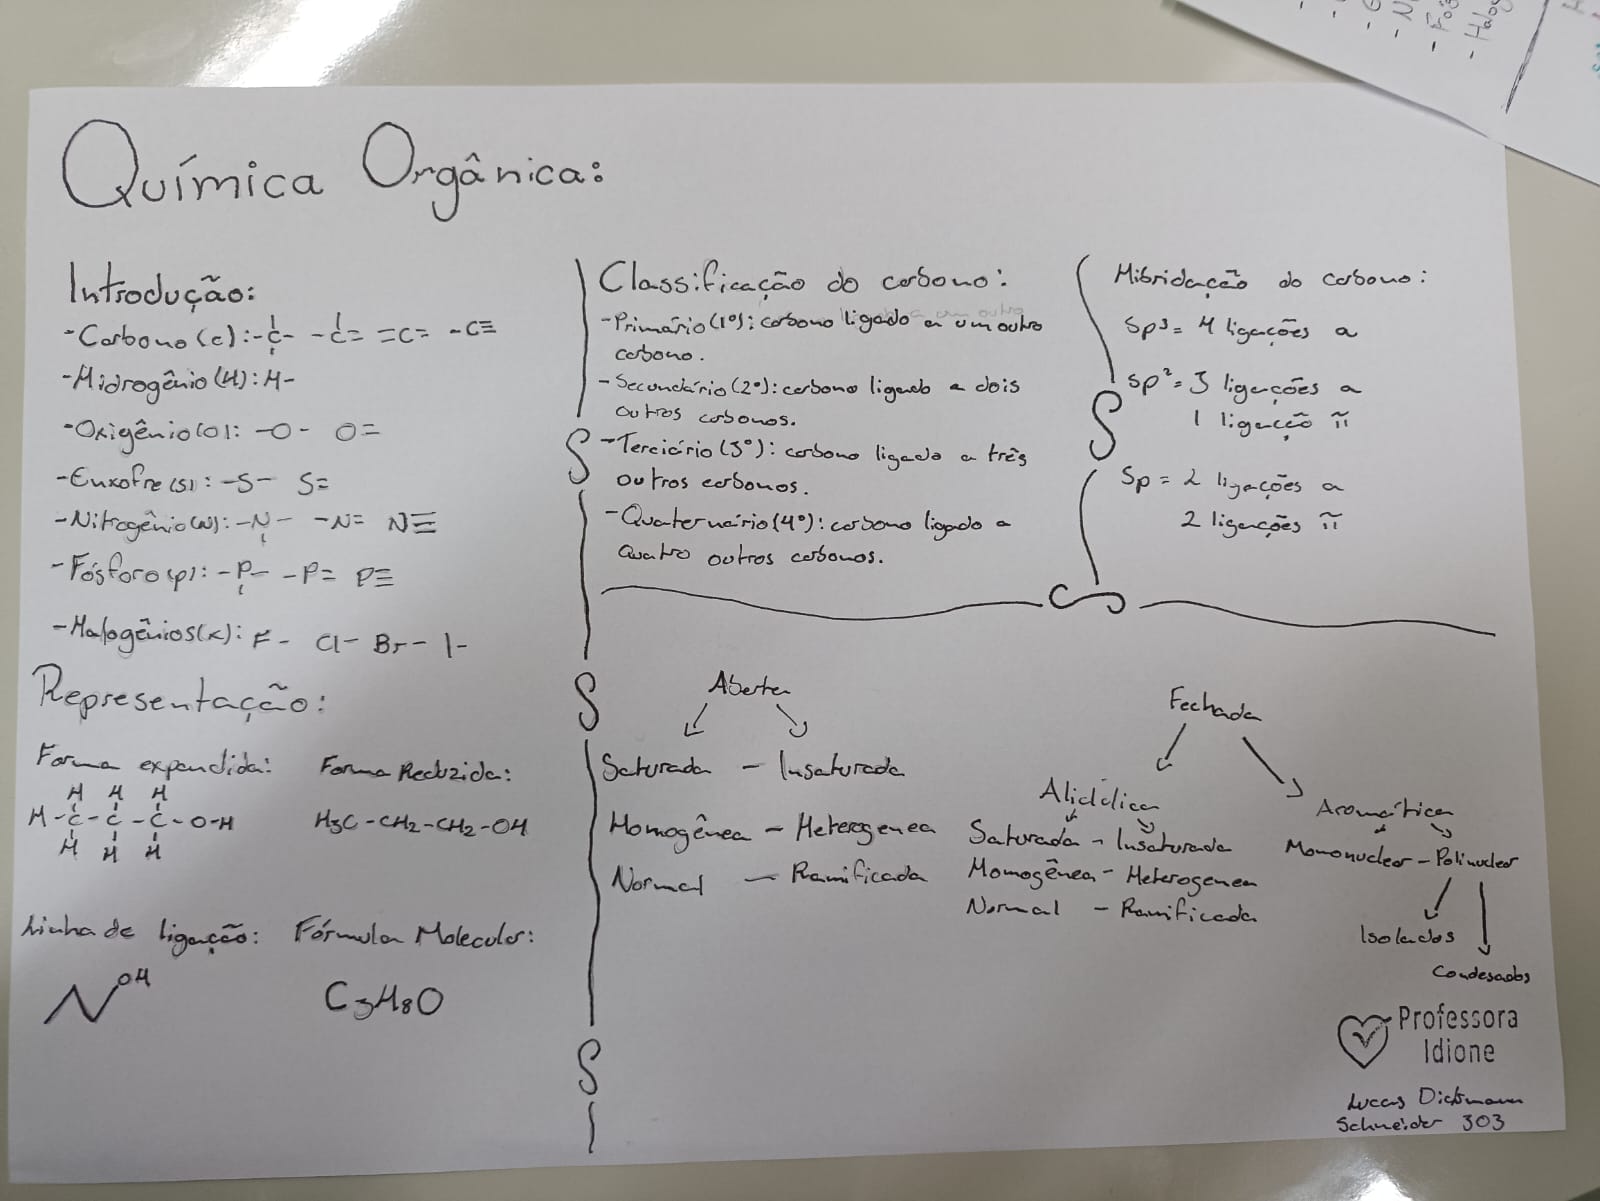 Química Orgânica:
Introdução:
-Carbono (c):-C- -C= =C= -C≡
-Hidrogênio (H): H-
-Oxigênio(O): -O- O=
-Enxofre(S): -S- S=
-Nitrogênio(N): -N- -N= N≡
-Fósforo(p): -P- -P= P≡
-Halogênios(x): F- Cl- Br- I-
Representação:
Forma expandida: Forma Reduzida:
H H H
H-C-C-C-O-H H3C-CH2-CH2-OH
H H H
Linha de ligação: Fórmula Molecular:
OH
C3H8O
Classificação do carbono:
-Primário(1º): carbono ligado a um outro
carbono.
-Secundário(2º): carbono ligado a dois
outros carbonos.
-Terciário(3º): carbono ligado a três
outros carbonos.
-Quaternário(4º): carbono ligado a
quatro outros carbonos.
Hibridação do carbono:
Sp³= 4 ligações a
Sp²= 3 ligações a
1 ligação π
Sp = 2 ligações a
2 ligações π
Aberta
Saturada - Insaturada
Homogênea - Heterogenea
Normal - Ramificada
Fechada
Aliciclica
Saturada - Insaturada
Homogênea - Heterogenea
Normal - Ramificada
Aromática
Mononuclear - Polinuclear
Isolados
Condesados
Professora
Idione
Lucas Dickmann
Schneider 303
- Halog